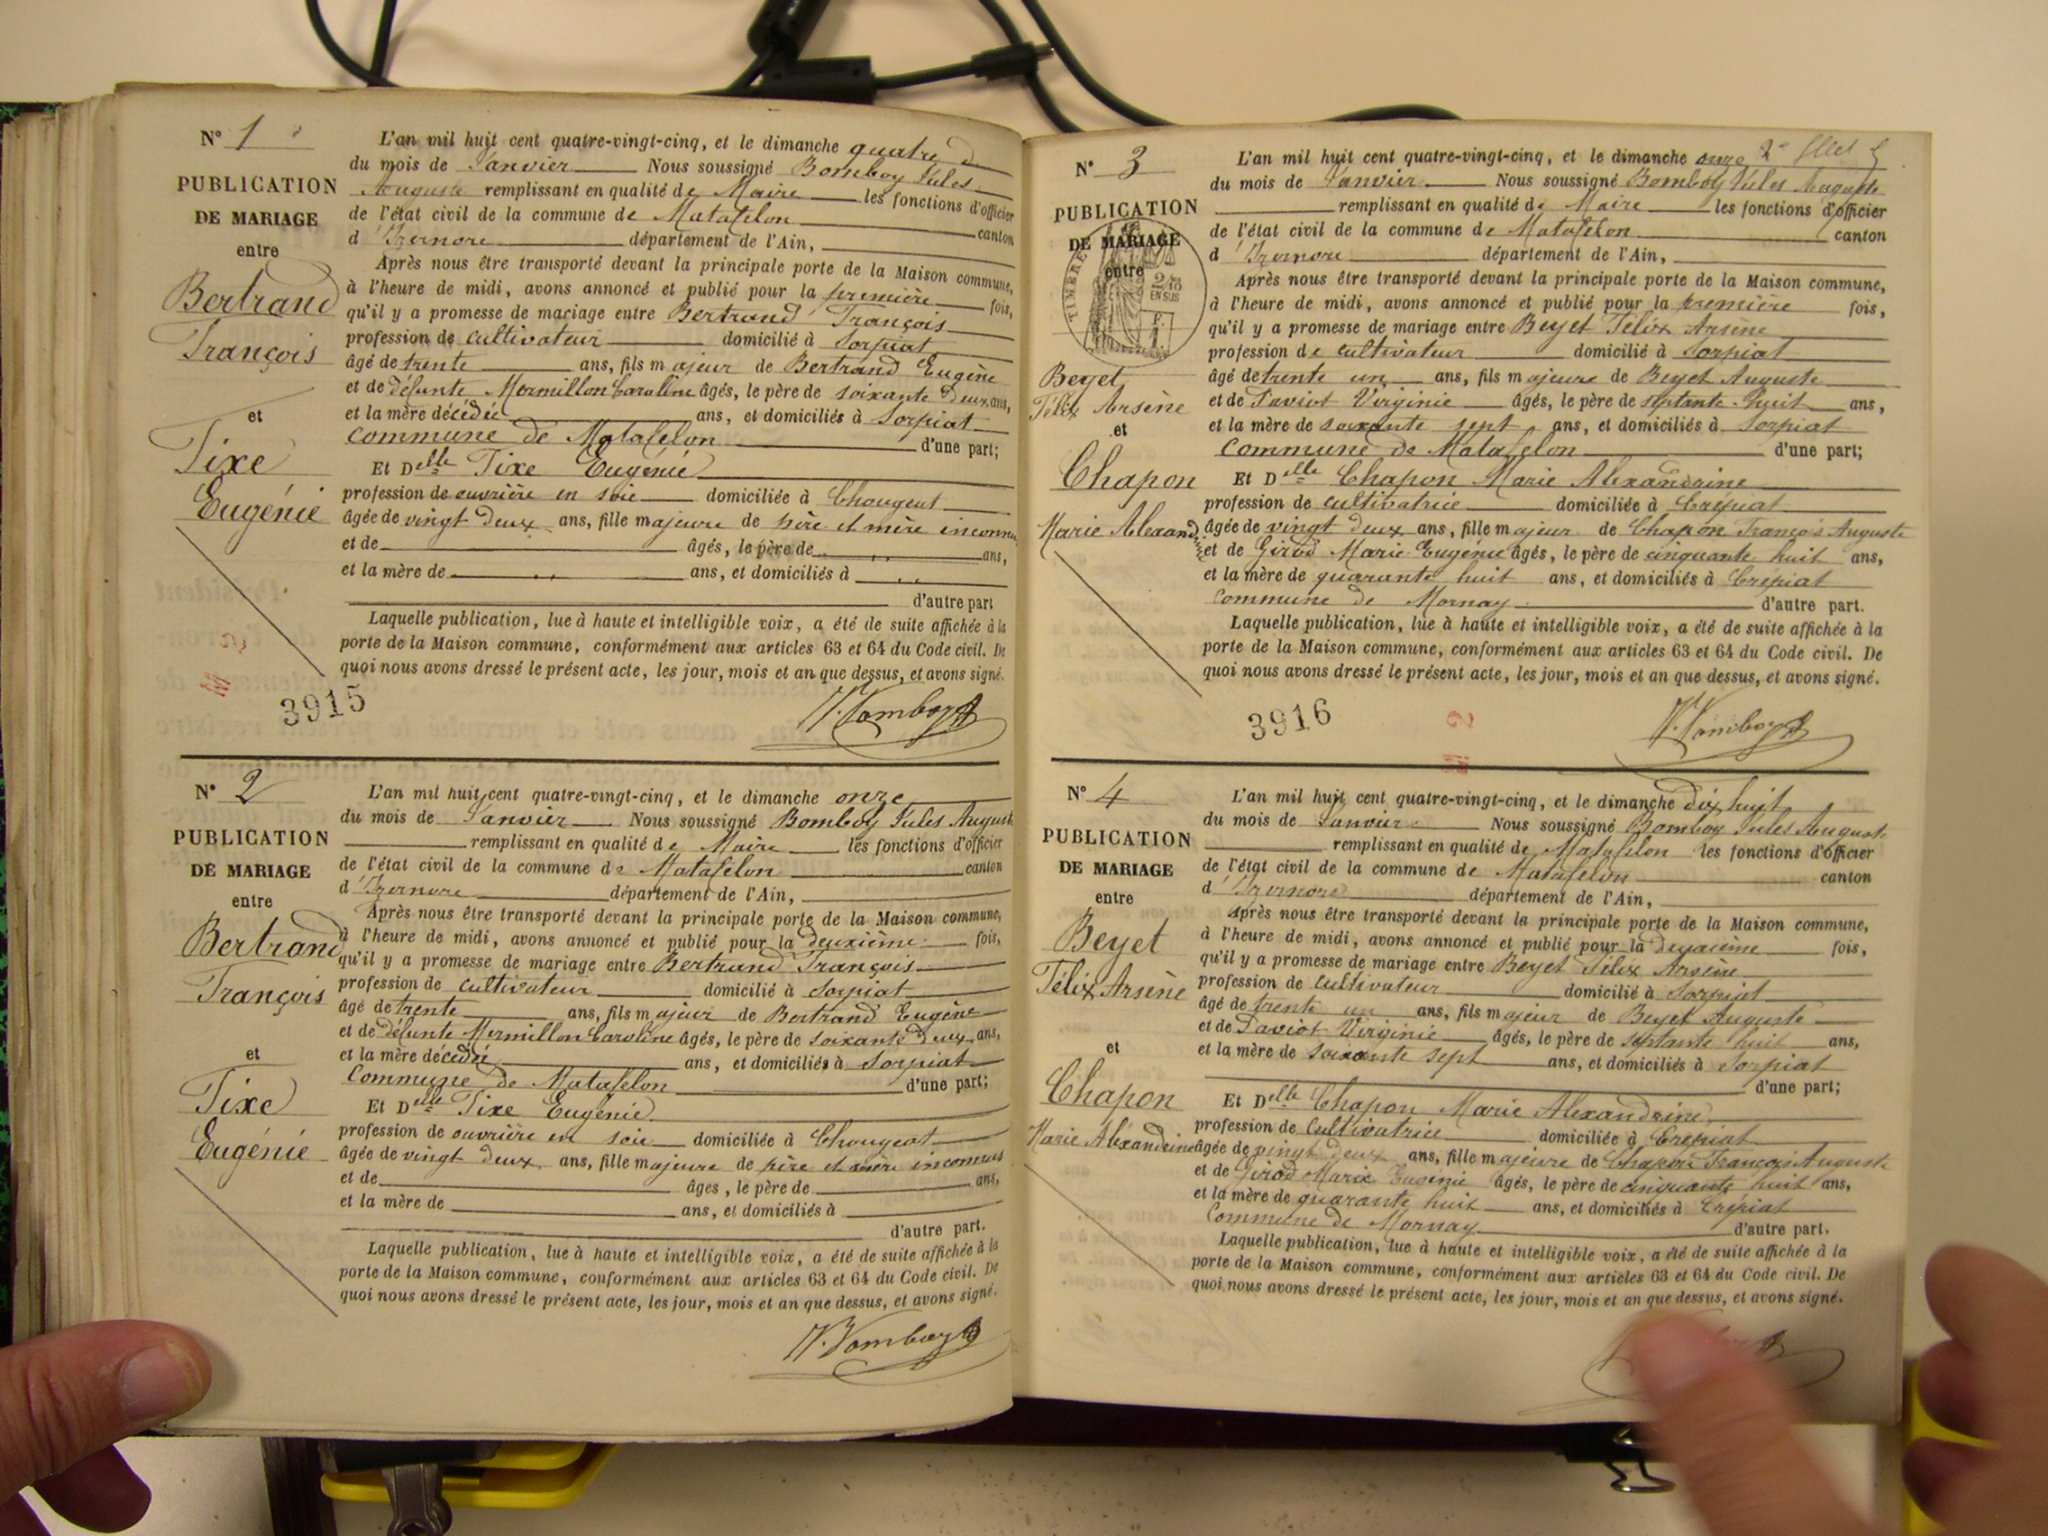 N° 1
PUBLICATION
DE MARIAGE
entre
Bertrand
François
et
Tixe
Eugénie
L'an mil huit cent quatre-vingt-cinq, et le dimanche quatre
du mois de Janvier Nous soussigné Bomboy Jules
Auguste remplissant en qualité de Maire les fonctions d'officier
de l'état civil de la commune de Matafelon canton
d'Izernore département de l'Ain,
Après nous être transporté devant la principale porte de la Maison commune,
à l'heure de midi, avons annoncé et publié pour la première fois,
qu'il y a promesse de mariage entre Bertrand François
profession de cultivateur domicilié à Sorpiat
âgé de trente ans, fils majeur de Bertrand Eugène
et de défunte Mermillon Caroline âgés, le père de soixante deux ans,
et la mère décédée ans, et domiciliés à Sorpiat
commune de Matafelon d'une part;
Et Delle Tixe Eugénie
profession de ouvrière en soie domiciliée à Chougeat
âgée de vingt deux ans, fille majeure de père et mère inconnus
et de âgés, le père de ans,
et la mère de ans, et domiciliés à
d'autre part
Laquelle publication, lue à haute et intelligible voix, a été de suite affichée à la
porte de la Maison commune, conformément aux articles 63 et 64 du Code civil. De
quoi nous avons dressé le présent acte, les jour, mois et an que dessus, et avons signé.
3915
Bomboy
N° 2
PUBLICATION
DE MARIAGE
entre
Bertrand
François
et
Tixe
Eugénie
L'an mil huit cent quatre-vingt-cinq, et le dimanche onze
du mois de Janvier Nous soussigné Bomboy Jules Auguste
remplissant en qualité de Maire les fonctions d'officier
de l'état civil de la commune de Matafelon canton
d'Izernore département de l'Ain,
Après nous être transporté devant la principale porte de la Maison commune,
à l'heure de midi, avons annoncé et publié pour la deuxième fois,
qu'il y a promesse de mariage entre Bertrand François
profession de cultivateur domicilié à Sorpiat
âgé de trente ans, fils majeur de Bertrand Eugène
et de défunte Mermillon Caroline âgés, le père de soixante deux ans,
et la mère décédée ans, et domiciliés à Sorpiat
Commune de Matafelon d'une part;
Et Delle Tixe Eugénie
profession de ouvrière en soie domiciliée à Chougeat
âgée de vingt deux ans, fille majeure de père et mère inconnus
et de âges, le père de ans,
et la mère de ans, et domiciliés à
d'autre part.
Laquelle publication, lue à haute et intelligible voix, a été de suite affichée à la
porte de la Maison commune, conformément aux articles 63 et 64 du Code civil. De
quoi nous avons dressé le présent acte, les jour, mois et an que dessus, et avons signé.
Bomboy
N° 3
PUBLICATION
DE MARIAGE
entre
TIMBRE
EN SUS
Beyet
Félix Arsène
et
Chapon
Marie Alexand
L'an mil huit cent quatre-vingt-cinq, et le dimanche onze
du mois de Janvier Nous soussigné Bomboy Jules Auguste
remplissant en qualité de Maire les fonctions d'officier
de l'état civil de la commune de Matafelon canton
d'Izernore département de l'Ain,
Après nous être transporté devant la principale porte de la Maison commune,
à l'heure de midi, avons annoncé et publié pour la première fois,
qu'il y a promesse de mariage entre Beyet Félix Arsène
profession de cultivateur domicilié à Sorpiat
âgé de trente un ans, fils majeure de Beyet Auguste
et de Taviot Virginie âgés, le père de septante huit ans,
et la mère de soixante sept ans, et domiciliés à Sorpiat
Commune de Matafelon d'une part;
Et Delle Chapon Marie Alexandrine
profession de cultivatrice domiciliée à Crépiat
âgée de vingt deux ans, fille majeur de Chapon François Auguste
et de Girod Marie Eugénie âgés, le père de cinquante huit ans,
et la mère de quarante huit ans, et domiciliés à Crépiat
Commune de Mornay d'autre part.
Laquelle publication, lue à haute et intelligible voix, a été de suite affichée à la
porte de la Maison commune, conformément aux articles 63 et 64 du Code civil. De
quoi nous avons dressé le présent acte, les jour, mois et an que dessus, et avons signé.
3916
Bomboy
N° 4
PUBLICATION
DE MARIAGE
entre
Beyet
Félix Arsène
et
Chapon
Marie Alexandrine
L'an mil huit cent quatre-vingt-cinq, et le dimanche dix huit
du mois de Janvier Nous soussigné Bomboy Jules Auguste
remplissant en qualité de Matafelon les fonctions d'officier
de l'état civil de la commune de Matafelon canton
d'Izernore département de l'Ain,
Après nous être transporté devant la principale porte de la Maison commune,
à l'heure de midi, avons annoncé et publié pour la deuxième fois,
qu'il y a promesse de mariage entre Beyet Félix Arsène
profession de cultivateur domicilié à Sorpiat
âgé de trente un ans, fils majeur de Beyet Auguste
et de Taviot Virginie âgés, le père de septante huit ans,
et la mère de soixante sept ans, et domiciliés à Sorpiat
d'une part;
Et Delle Chapon Marie Alexandrine
profession de Cultivatrice domiciliée à Crépiat
âgée de vingt deux ans, fille majeure de Chapon François Auguste
et de Girod Marie Eugénie âgés, le père de cinquante huit ans,
et la mère de quarante huit ans, et domiciliés à Crépiat
Commune de Mornay d'autre part.
Laquelle publication, lue à haute et intelligible voix, a été de suite affichée à la
porte de la Maison commune, conformément aux articles 63 et 64 du Code civil. De
quoi nous avons dressé le présent acte, les jour, mois et an que dessus, et avons signé.